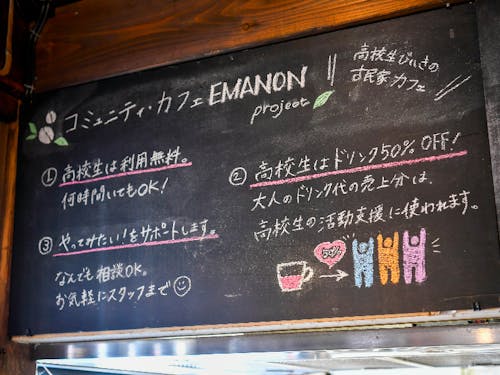 コミュニティ・カフェ EMANON
project
高校生びいきの
古民家カフェ
① 高校生は利用無料。
何時間いてもOK!
② 高校生はドリンク50% OFF!
大人のドリンク代の売上分は、
高校生の活動支援に使われます。
③ やってみたい!をサポートします。
なんでも相談OK。
お気軽にスタッフまで